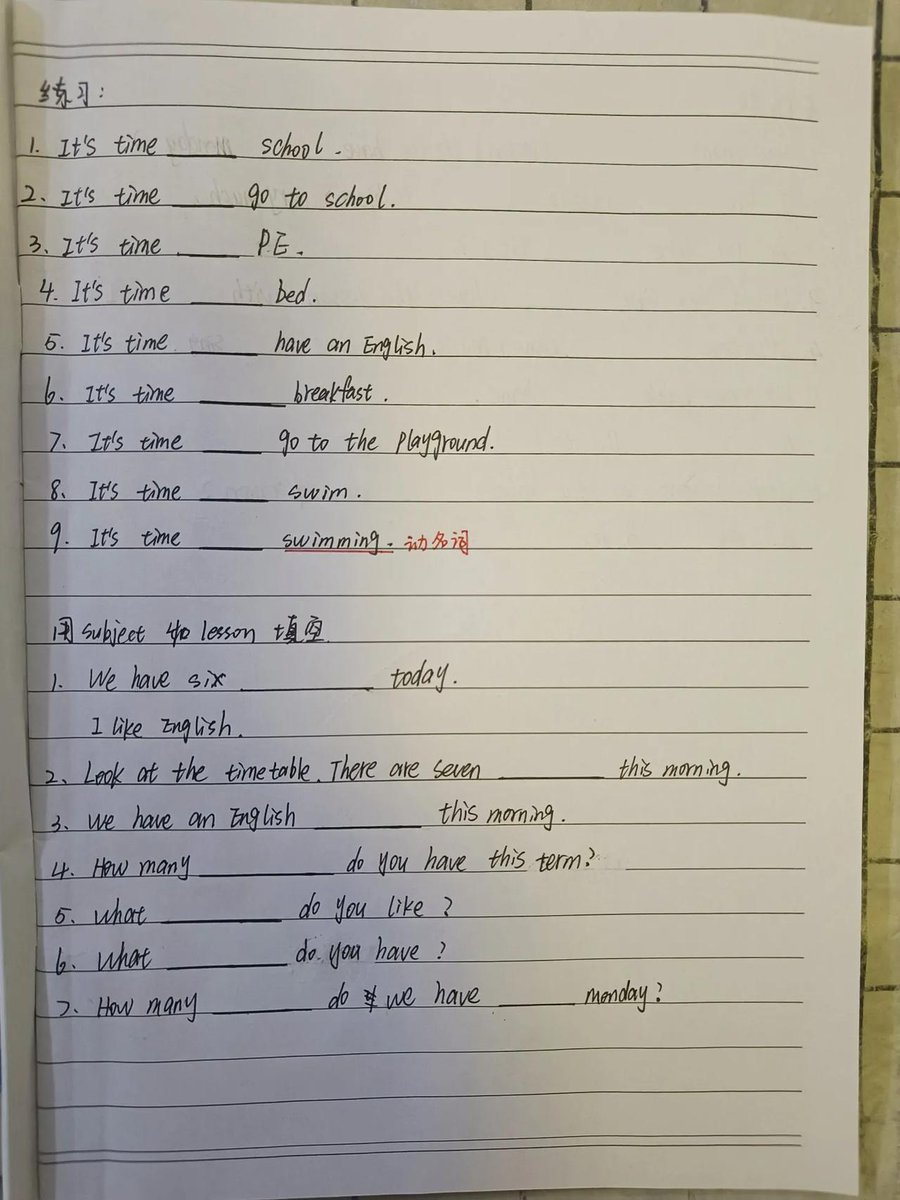 练习:
1. It's time ______ school.
2. It's time ______ go to school.
3. It's time ______ P.E.
4. It's time ______ bed.
5. It's time ______ have an English.
6. It's time ______ breakfast.
7. It's time ______ go to the playground.
8. It's time ______ swim.
9. It's time ______ swimming. 动名词
用 subject 和 lesson 填空
1. We have six ______ today.
I like English.
2. Look at the timetable. There are seven ______ this morning.
3. we have an English ______ this morning.
4. How many ______ do you have this term?
5. what ______ do you like?
6. what ______ do you have?
7. How many ______ do we have ______ monday?